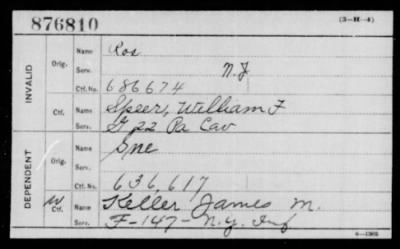 876810 (3-H-4)
INVALID
Orig. Name Ros
Serv. N.J.
Ctf. No. 686674
Ctf. Name Speer, William F
Serv. G 22 Pa Cav
DEPENDENT
Orig. Name Sne
Serv.
Ctf. No. 636,617
W Ctf. Name Keller James M.
Serv. F-147- N.Y. Inf
6-1302